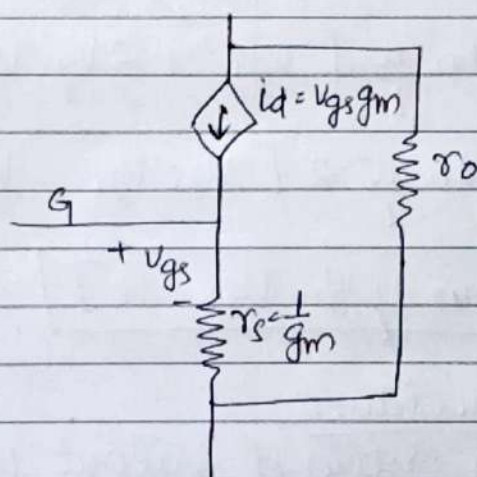 id = vgs gm
ro
G
+ vgs
-
rs = 1/gm